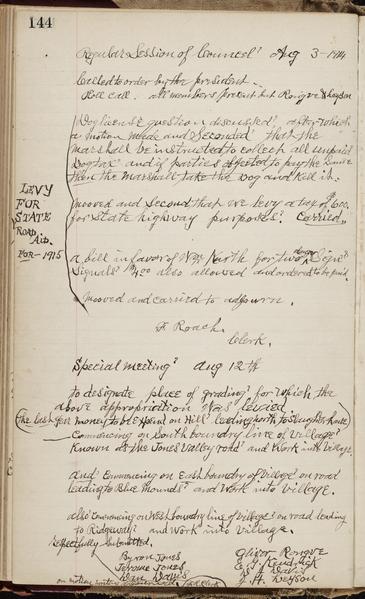 144
Regular Session of Council Aug 3-1914
Called to order by the president.
Roll call. all members present but Rongve &
Dog license question discussed, after which
a motion made and Seconded that the
Marshall be instructed to collect all unpaid
Dog tax and if parties to pay the Same
then the Marshall take the Dog and Kill it.
LEVY
FOR
STATE
ROAD
Aid.
FOR-1915
Mooved and Second that we Levy a tax of
for State highway purposes. Carried.
a bill in favor of Wm North for two danger Signs
Signals also allowed and ordered to be paid.
Mooved and carried to adjourn.
F Roach.
Clerk.
Special meeting Aug 12th
to designate place of grading for which the
above appropriation was levied.
(The last year money to be spent on Hill leading north to Slaughterhouse)
Commencing on South boundry line of Village
Known as the Jones Valley road and Work into Village.
and Commencing on East boundry of Village on road
leading to Blue Mounds and Work into Village.
also Commencing on West boundry line of Village on road leading
to Ridgeway and Work into Village.
Respectfully Submitted.
Byron Jones
Jerome Jones
Dan Davis
Oliver Rongve
Kendrick
Davis